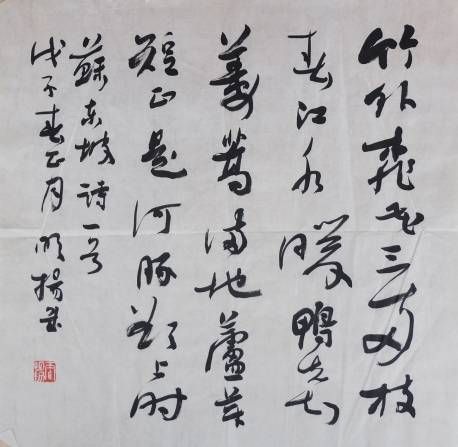 竹外桃花三两枝
春江水暖鴨先知
蔞蒿满地蘆芽
短正是河豚欲上时
蘇东坡詩一首
戊子春正月明揚書